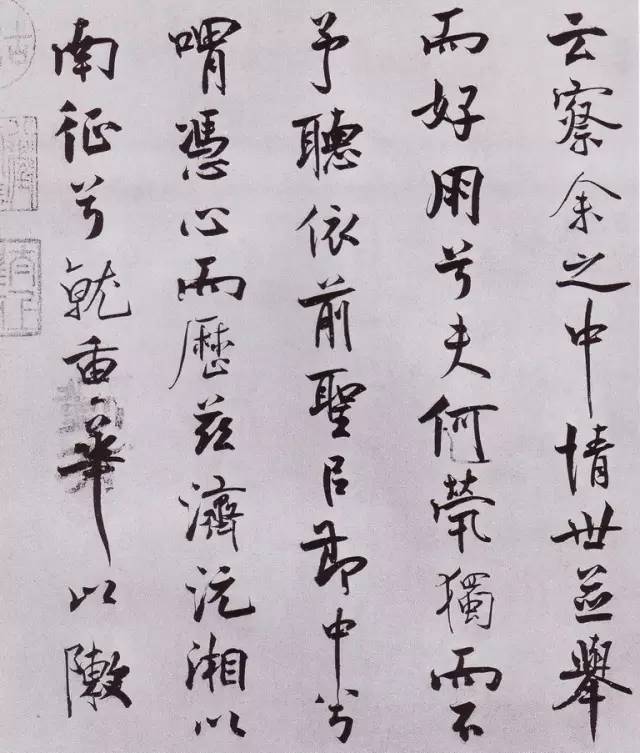 云察余之中情世並舉
而好朋兮夫何煢獨而不
予聽依前聖㠯節中兮
喟憑心而歷茲濟沅湘以
南征兮就重華以敶